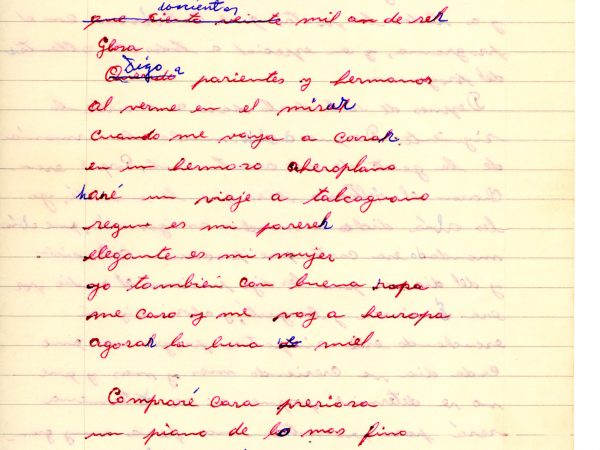 doscientos
que ciento veinte mil an de ser
Glosa
digo a parientes y hermanos
al verme en el mirar
cuando me vaya a casar
en un hermoso aheroplano
haré un viaje a talcaguano
segun es mi pareser
elegante es mi mujer
yo también con buena ropa
me caso y me voy a heuropa
agosar la luna de miel
Compraré casa presiosa
un piano de lo mas fino